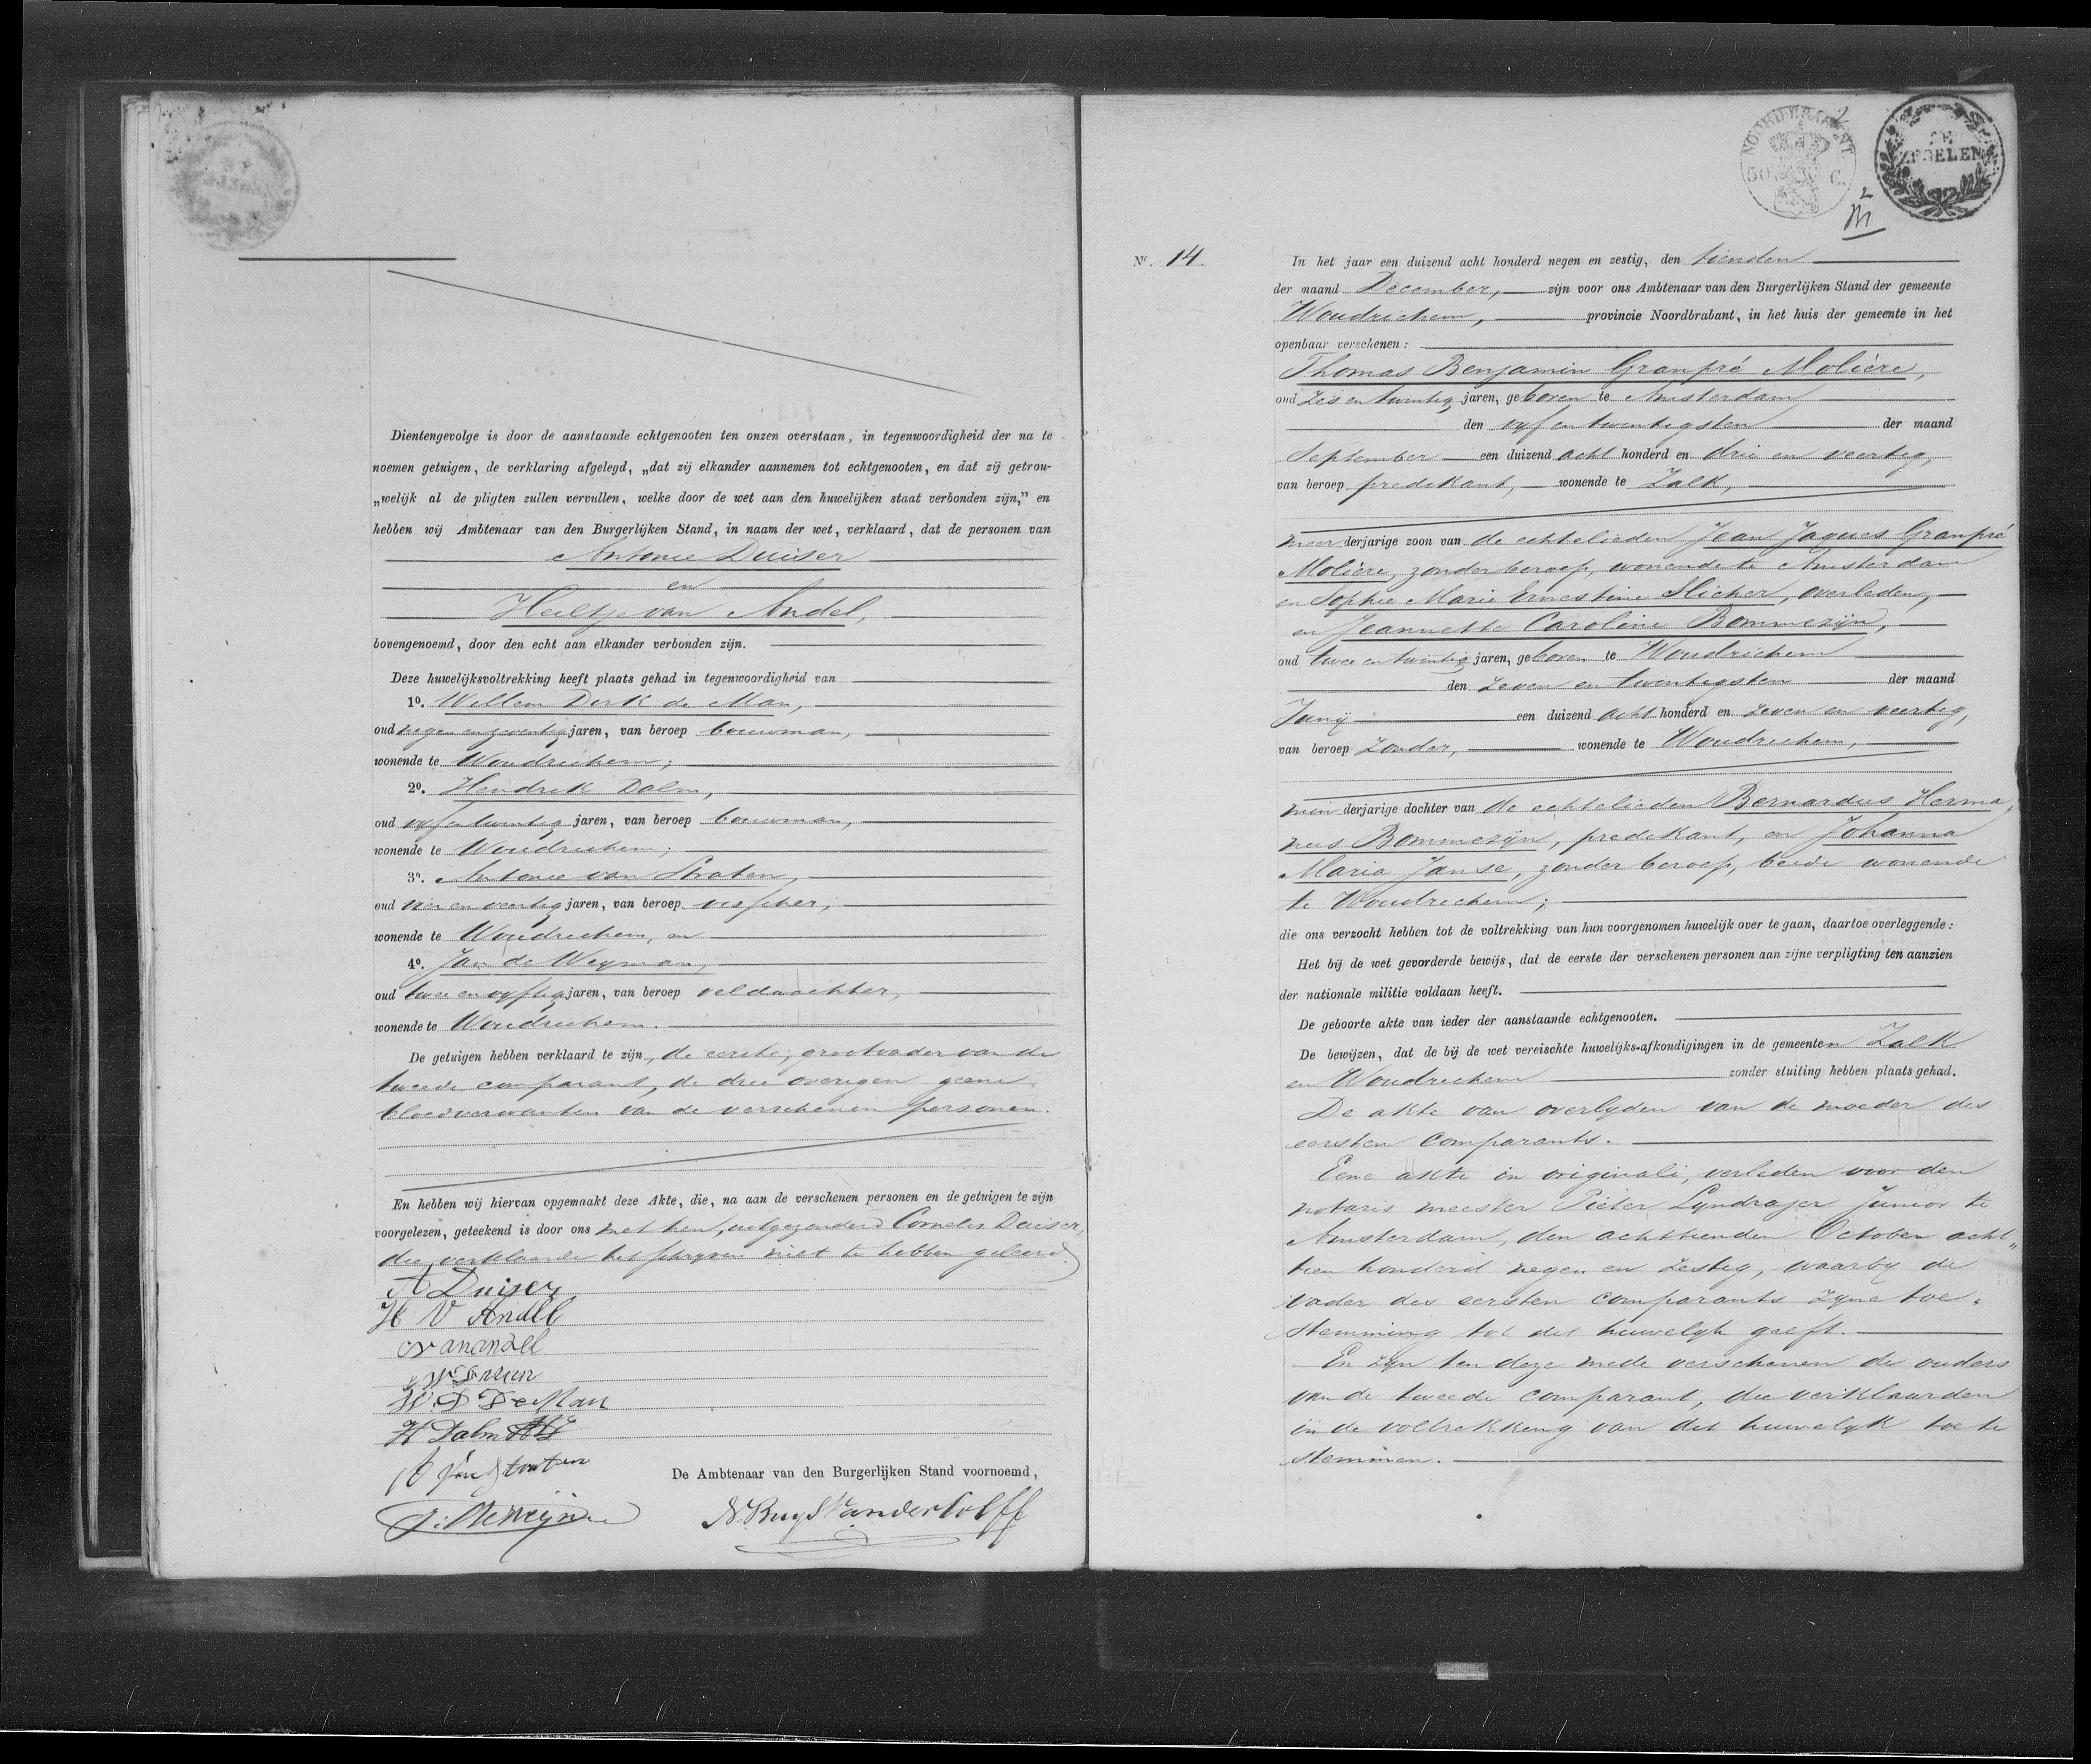 Dientengevolge is door de aanstaande echtgenooten ten onzen overstaan, in tegenwoordigheid der na te
noemen getuigen, de verklaring afgelegd, „dat zij elkander aannemen tot echtgenooten, en dat zij getrou-
„welijk al de pligten zullen vervullen, welke door de wet aan den huwelijken staat verbonden zijn,” en
hebben wij Ambtenaar van den Burgerlijken Stand, in naam der wet, verklaard, dat de personen van
Antonie Duiser
en
Heiltje van Andel,
bovengenoemd, door den echt aan elkander verbonden zijn.
Deze huwelijksvoltrekking heeft plaats gehad in tegenwoordigheid van
1o. Willem Dirk de Man,
oud negen en zeventig jaren, van beroep bouwman,
wonende te Woudrichem;
2o. Hendrik Dalm,
oud vyf en twintig jaren, van beroep bouwman,
wonende te Woudrichem;
3o. Antonie van Straten,
oud vier en veertig jaren, van beroep visscher,
wonende te Woudrichem, en
4o. Jan de Weyman,
oud twee en vyftig jaren, van beroep veldwachter,
wonende te Woudrichem.
De getuigen hebben verklaard te zijn, de eerste, grootvader van de
tweede comparant, de drie overigen geene
bloedverwanten van de verschenen personen.
En hebben wij hiervan opgemaakt deze Akte, die, na aan de verschenen personen en de getuigen te zijn
voorgelezen, geteekend is door ons met hen, uitgezonderd Cornelis Duiser,
die verklaarde het schryven niet te hebben geleerd.
A Duiser
H V Andel
C vanandel
W. D De Man
H Dalm
De Ambtenaar van den Burgerlijken Stand voornoemd,
NOORD-BRABANT.
50 C.
2
ZEGELEN
No. 14.
In het jaar een duizend acht honderd negen en zestig, den tienden
der maand December, zijn voor ons Ambtenaar van den Burgerlijken Stand der gemeente
Woudrichem, provincie Noordbrabant, in het huis der gemeente in het
openbaar verschenen:
Thomas Benjamin Granpré Molière,
oud zes en twintig jaren, geboren te Amsterdam
den vyf en twintigsten der maand
September een duizend acht honderd en drie en veertig,
van beroep predikant, wonende te Zalk,
meerderjarige zoon van de echtelieden Jean Jaques Granpré
Molière, zonder beroep, wonende te Amsterdam
en Sophie Marie Ernestine Slicher, overleden,
en Jeannette Caroline Bommezijn,
oud twee en twintig jaren, geboren te Woudrichem
den zeven en twintigsten der maand
Junij een duizend acht honderd en zeven en veertig,
van beroep zonder, wonende te Woudrichem,
minderjarige dochter van de echtelieden Bernardus Herma„
nus Bommezijn, predikant, en Johanna
Maria Janse, zonder beroep, beide wonende
te Woudrichem;
die ons verzocht hebben tot de voltrekking van hun voorgenomen huwelijk over te gaan, daartoe overleggende:
Het bij de wet gevorderde bewijs, dat de eerste der verschenen personen aan zijne verpligting ten aanzien
der nationale militie voldaan heeft.
De geboorte akte van ieder der aanstaande echtgenooten.
De bewijzen, dat de bij de wet vereischte huwelijks-afkondigingen in de gemeenten Zalk
en Woudrichem zonder stuiting hebben plaats gehad.
De akte van overlyden van de moeder des
eersten comparants.
Eene akte in originali, verleden voor den
notaris meester Pieter Lyndrajer Junior te
Amsterdam, den achttienden October acht„
tien honderd negen en zestig, waarby de
vader des eersten comparants zyne toe„
stemming tot dit huwelyk geeft.
En zyn ten deze mede verschenen de ouders
van de tweede comparant, die verklaarden
in de voltrekking van dit huwelyk toe te
stemmen.